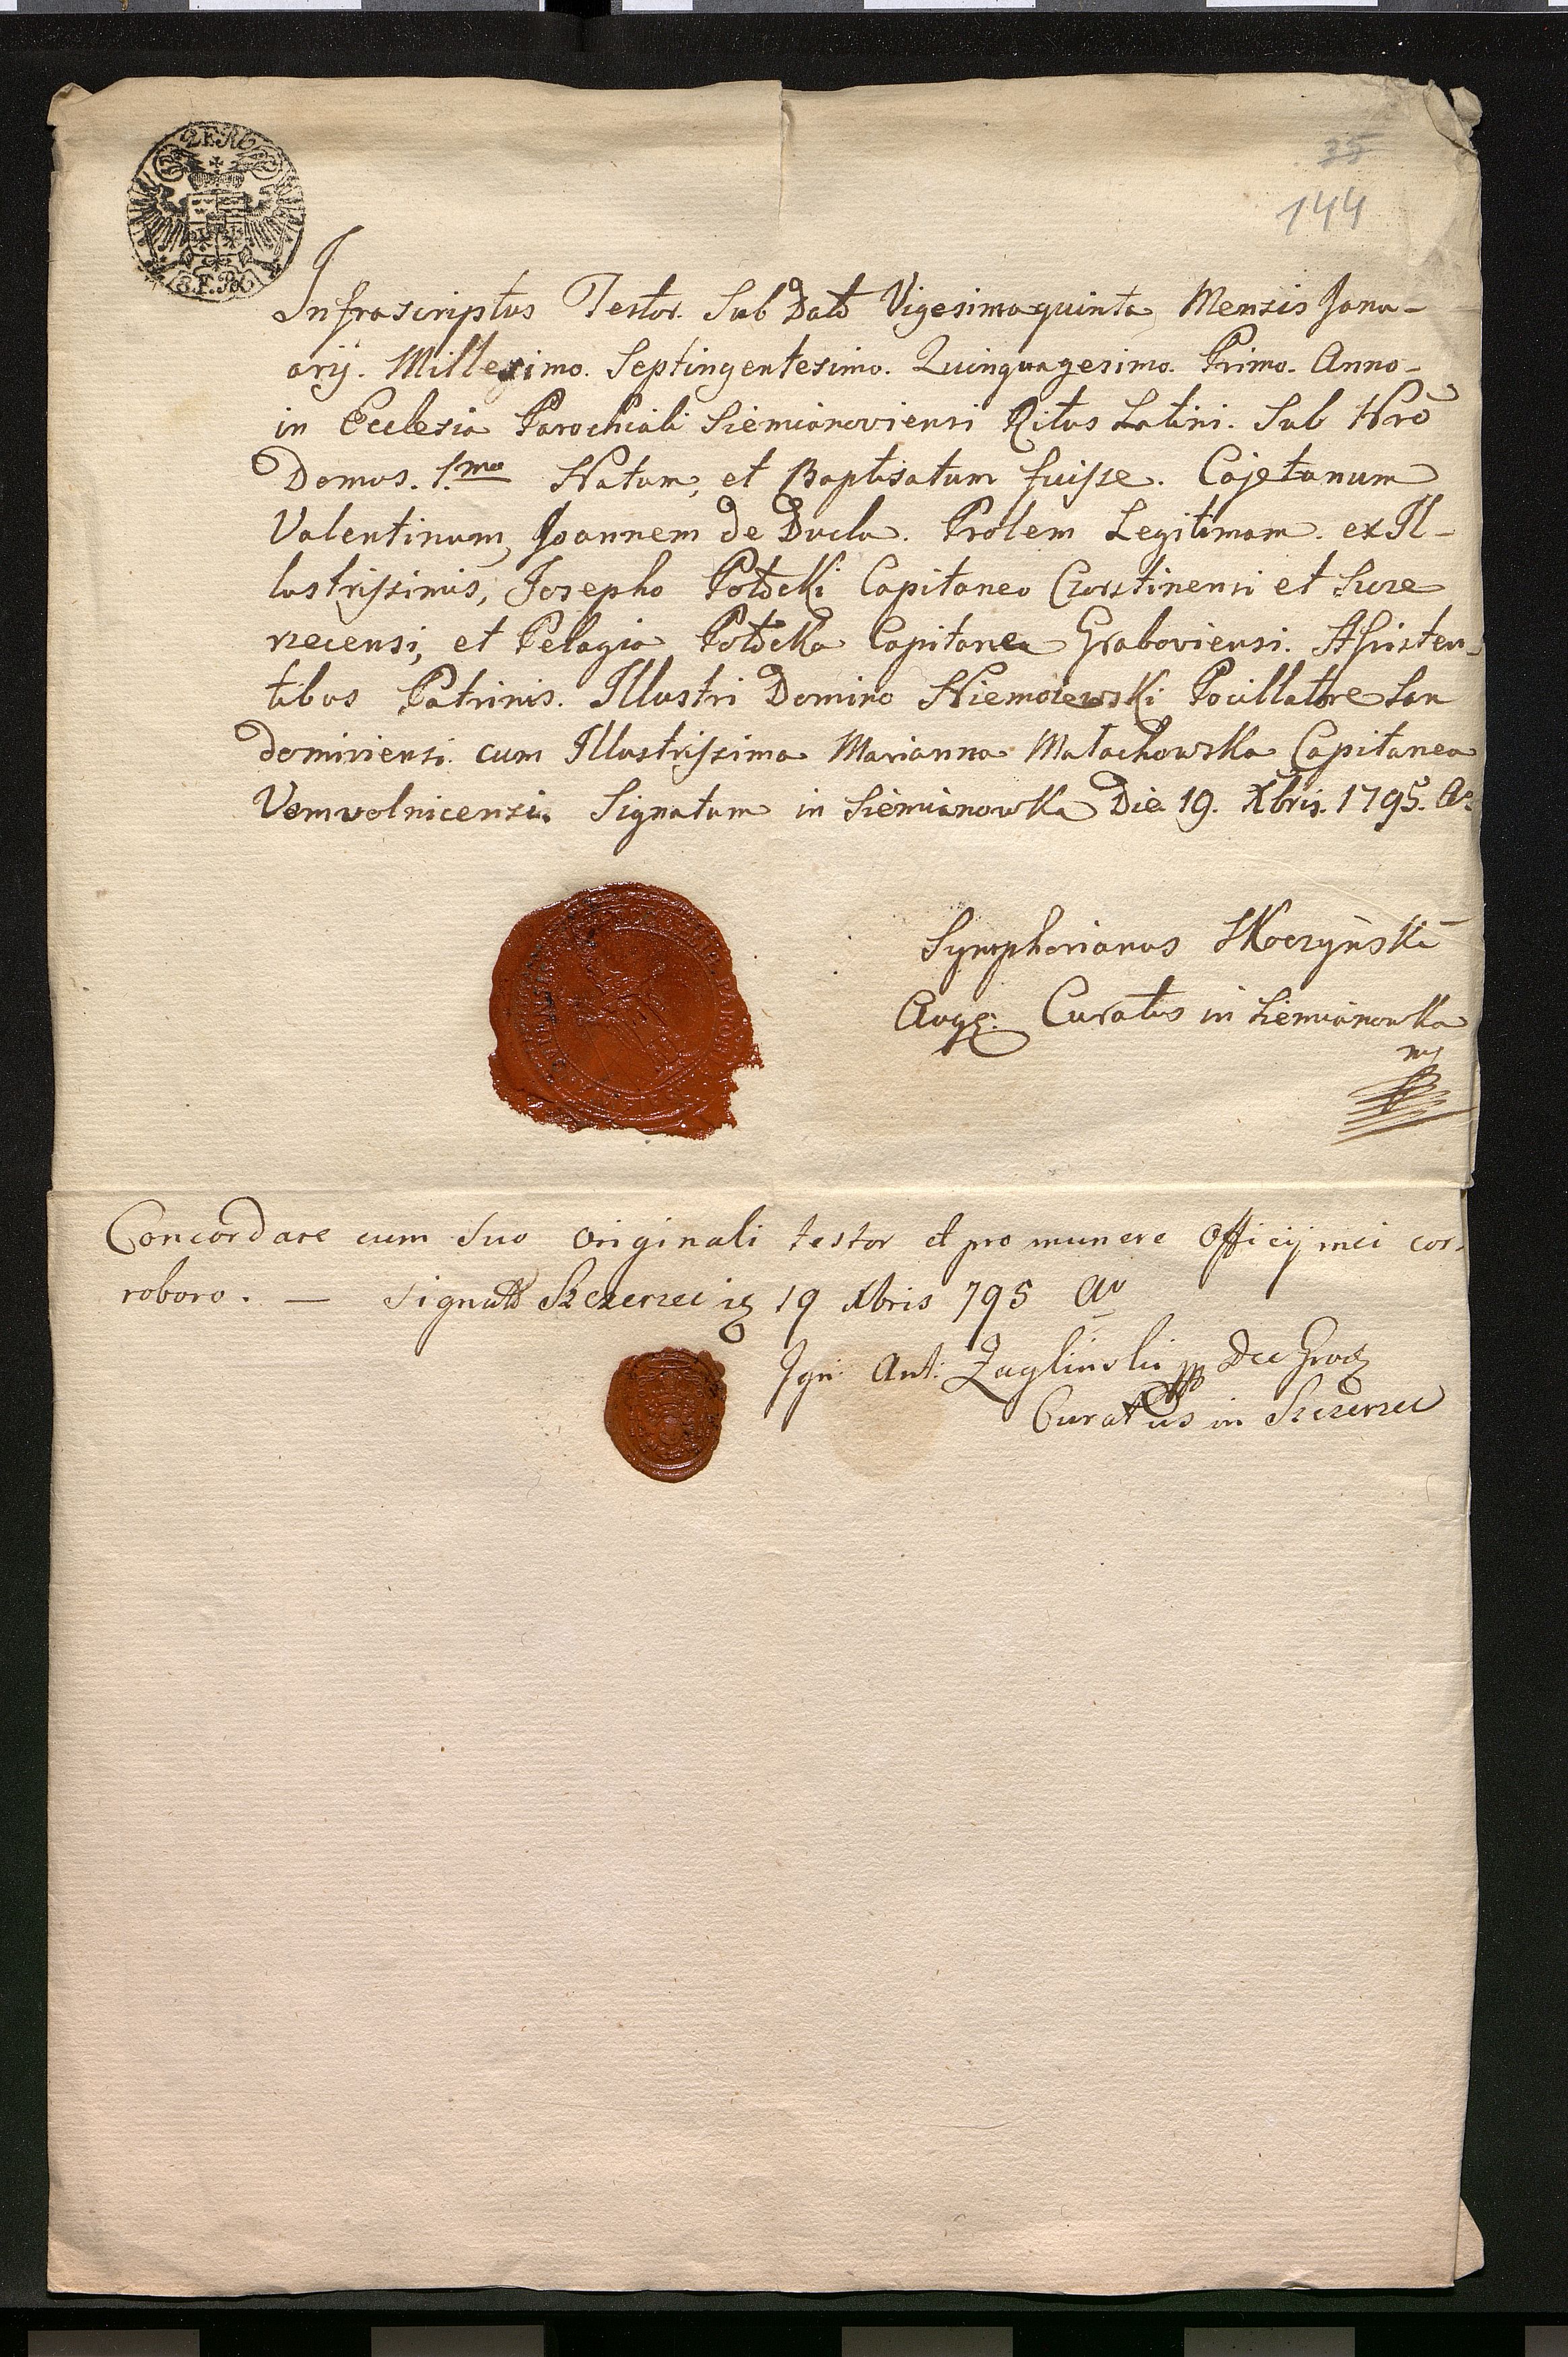 2 F. R
35
144
3 F. R
Infrascriptus Testor. Sub Dato Vigesimaquinta Mensis Janu-
arij. Millesimo. Septingentesimo. Quinquagesimo. Primo. Anno.
in Ecclesia Parochiali Siemianoviensi Ritus Latini. Sub Nro
Domus. 1.ma Natum, et Baptisatum fuisse. Cajetanum
Valentinum, Joannem de Ducla. Prolem Legitimam. ex Il-
lustrissimis, Josepho Potocki Capitaneo Czorstinensi et Sicze
rzecensi, et Pelagia Potocka Capitanea Graboviensi. Assisten-
tibus Patrinis. Illustri Domino Niemoiewski Pocillatore San
domiriensi. cum Illustrissima Marianna Małachowska Capitanea
Vomvolnicensi. Signatum in Siemianowka Die 19. Xbris. 1795. Ao
Symphorianus Skoczyński
Curatus in Siemianowka
mp
Concordare cum Suo Originali testor et pro munere Officij mei cor-
roboro. — Signato Szczerzec 19 Xbris 795 Ao
Ign: Ant: Zaglinski Dec Grod
Curatus in Szczerzec